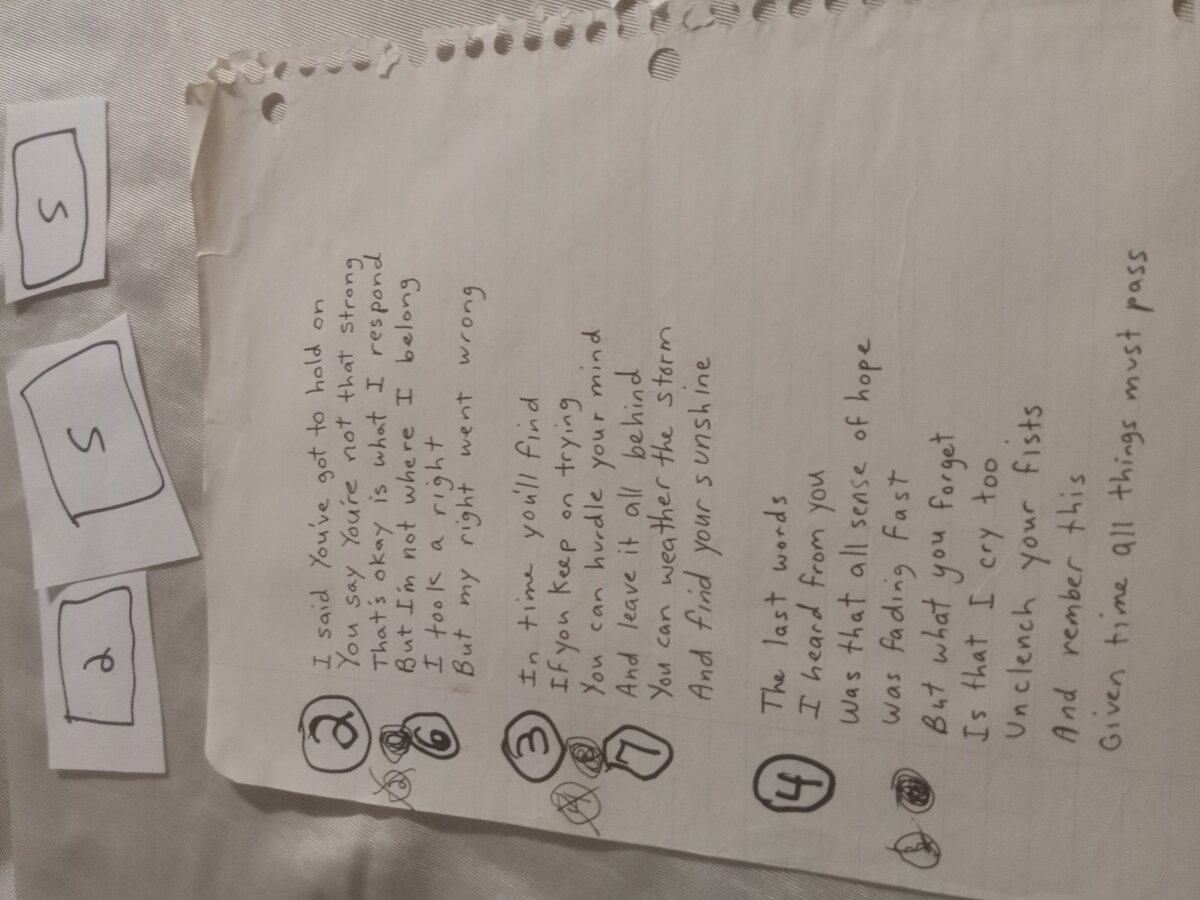 2
5
5
2
I said you've got to hold on
You say You're not that strong
That's okay is what I respond
6
But I'm not where I belong
I took a right
But my right went wrong
3
In time you'll find
If you keep on trying
You can hurdle your mind
7
And leave it all behind
You can weather the storm
And find your sunshine
4
The last words
I heard from you
Was that all sense of hope
was fading fast
But what you forget
Is that I cry too
Unclench your fists
And rember this
Given time all things must pass